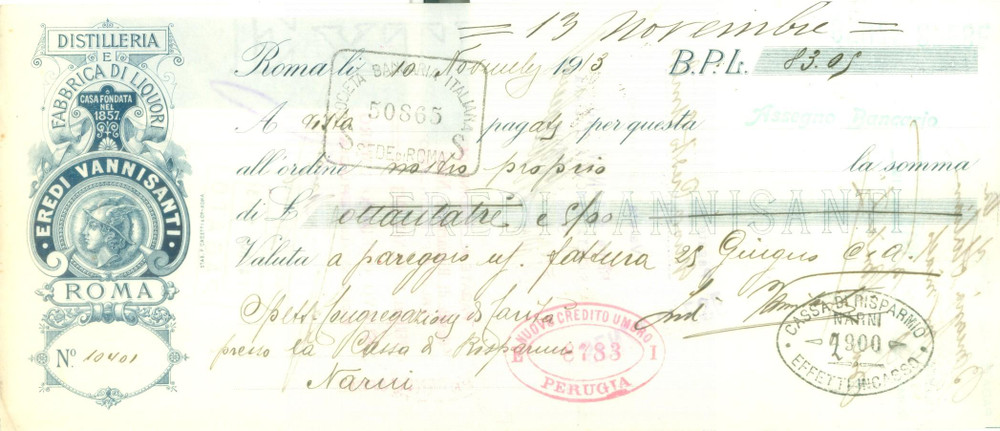 DISTILLERIA
E
FABBRICA DI LIQUORI
CASA FONDATA
NEL
1857.
EREDI VANNISANTI
ROMA
N.º 10401
= 13 Novembre =
Roma li 10 1913 B.P.L. 83.05
SOCIETÀ BANCARIA ITALIANA
50865
S S
SEDE DI ROMA
A vista pagate per questa
Assegno Bancario
all'ordine nostro proprio la somma
di L. ottantatré e 5/00
EREDI VANNISANTI
Valuta a pareggio fattura 25 Giugno c.a.
Spett. Congregazione di Carità
presso la Cassa di Risparmio
Narni
NUOVO CREDITO UMBRO
E 3783 I
PERUGIA
CASSA DI RISPARMIO
NARNI
2900
EFFETTI INCASSO